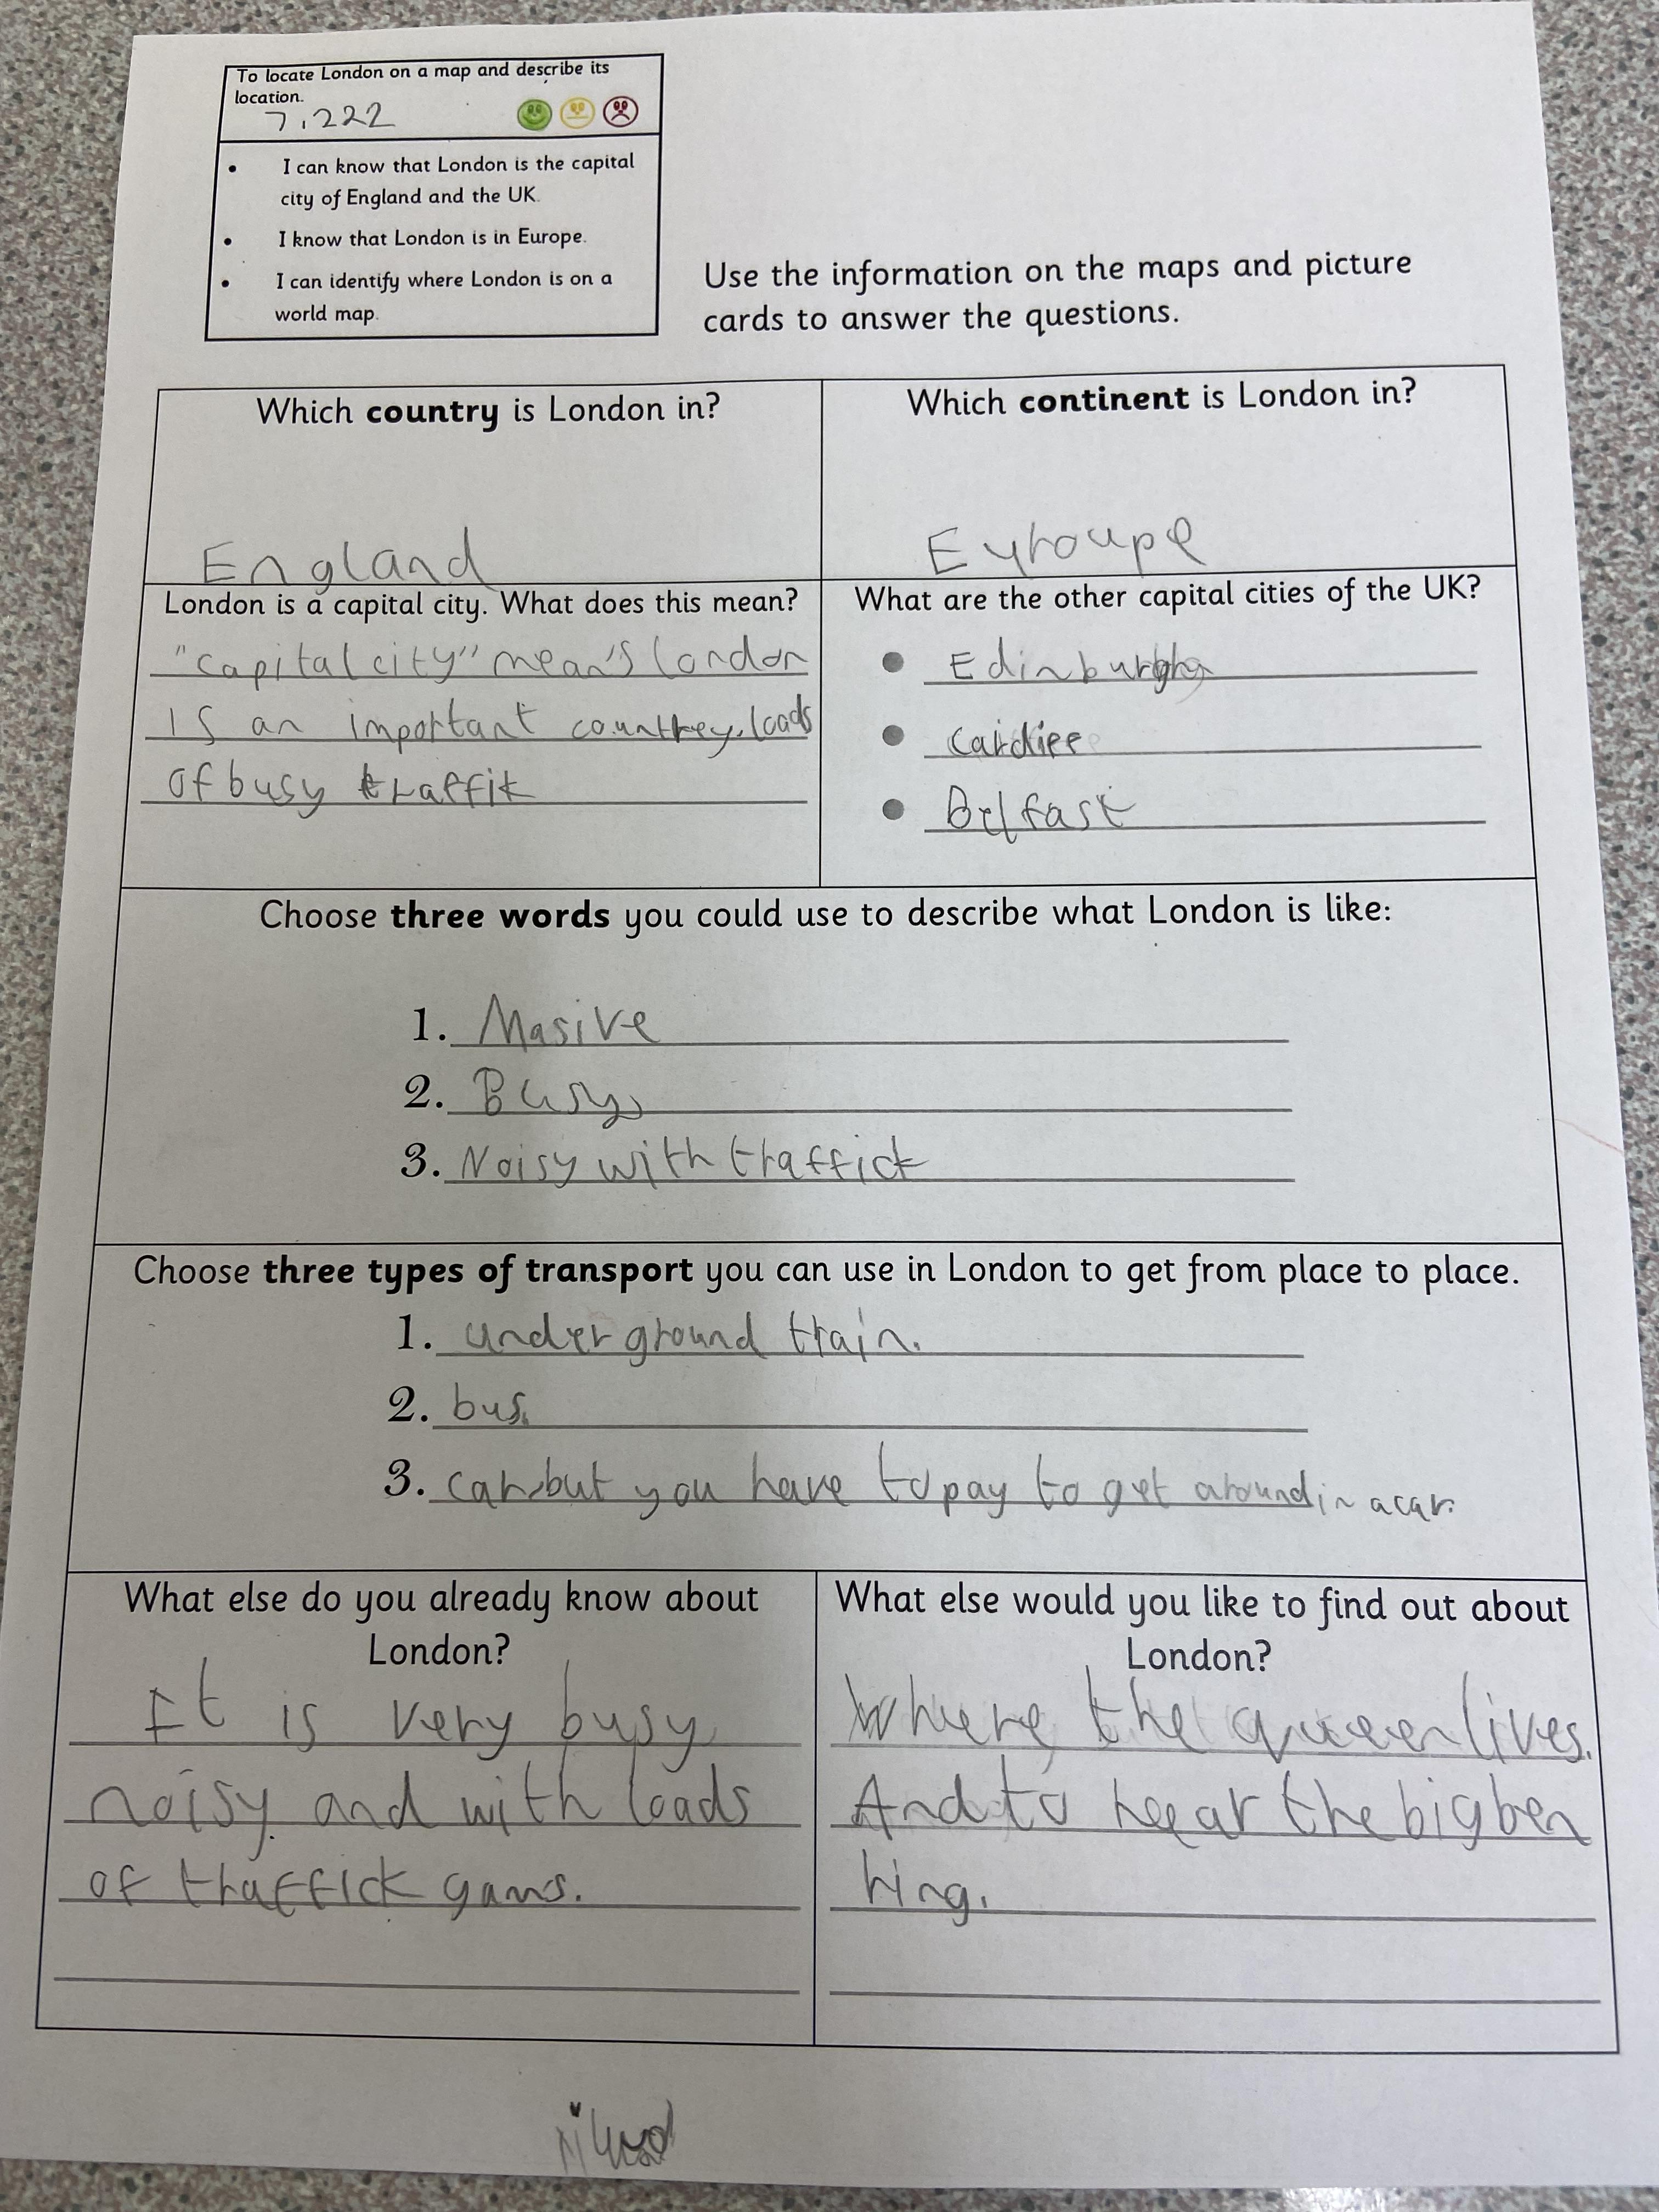 To locate London on a map and describe its
location.
7.222
• I can know that London is the capital
city of England and the UK.
• I know that London is in Europe.
• I can identify where London is on a
world map.
Use the information on the maps and picture
cards to answer the questions.
Which country is London in?
England
Which continent is London in?
Eyroupe
London is a capital city. What does this mean?
"capital city" mean's london
is an important countrey. loads
of busy traffik
What are the other capital cities of the UK?
• Edinburgh
• cardiff
• Belfast
Choose three words you could use to describe what London is like:
1. Masive
2. Busy
3. Noisy with traffick
Choose three types of transport you can use in London to get from place to place.
1. under ground train.
2. bus.
3. car, but you have to pay to get around in a car.
What else do you already know about
London?
It is very busy
noisy and with loads
of traffick gams.
What else would you like to find out about
London?
Where the queen lives.
And to hear the big ben
ring.